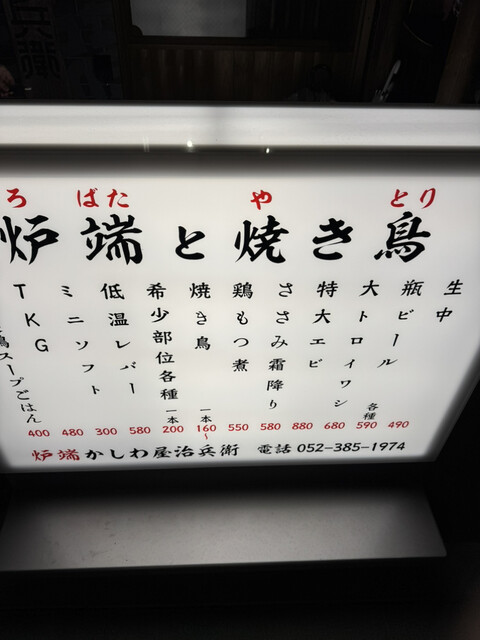 兵衛
ろばた や とり
炉端と焼き鳥
生中 490
瓶ビール 各種 590
大トロイワシ 680
特大エビ 880
ささみ霜降り 580
鶏もつ煮 550
焼き鳥 一本 160〜
希少部位各種 一本 200
低温レバー 580
ミニソフト 300
TKG 480
鶏スープごはん 400
炉端かしわ屋治兵衛 電話 052-385-1974